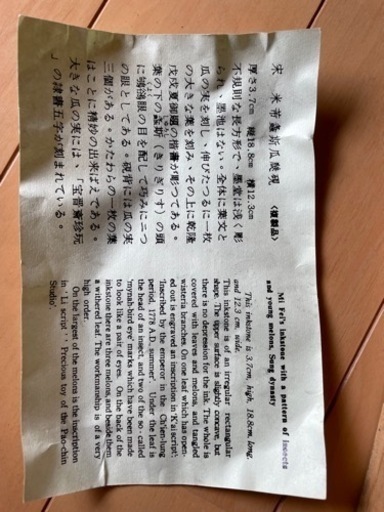 宋 米芾螽斯瓜瓞硯 〈複製品〉
厚さ3.7cm 縦18.8cm 横12.3cm
不規則な長方形で、墨堂は浅く彫
られ、墨池はない。全体に葉文と
瓜の実を刻し、伸びたつるに一枚
の大きな葉を刻み、その上に乾隆
戊戌夏御題の楷書が彫つてある。
葉の下の螽斯(きりぎりす)の頭
に鴝鵒眼の目を配して巧みに二つ
の眼としてある。硯背には瓜の実
三個がある。かたわらの一枚の葉
はことに精妙の出来ばえである。
大きな瓜の実には、「宝晋斎珍玩
」の隷書五字が刻まれている。
Mi Fei's inkstone with a pattern of insects
and young melons, Sung dynasty
This inkstone is 3.7cm, high, 18.8cm, long,
and 12.3 cm, wide.
This inkstone is of an irregular rectangular
shape. The upper surface is slightly concave, but
there is no depression for the ink. The whole is
covered with leaves and melons, and tangled
wisteria branches. On one leaf which has open-
ed out is engraved an inscription in 'K'ai script':
'Inscribed by the emperor in the Ch'ien-lung
period, 1778 A.D., summer'. Under the leaf is
the head of an insect, and two of the so called
'mynah-bird eye' marks which have been made
to look like a pair of eyes. On the back of the
inkstone there are three melons, and beside them
a withered leaf. The workmanship is of a very
high order.
On the largest of the melons is the inscription
in 'Li script': 'Precious toy of the Pao-chin
Studio'